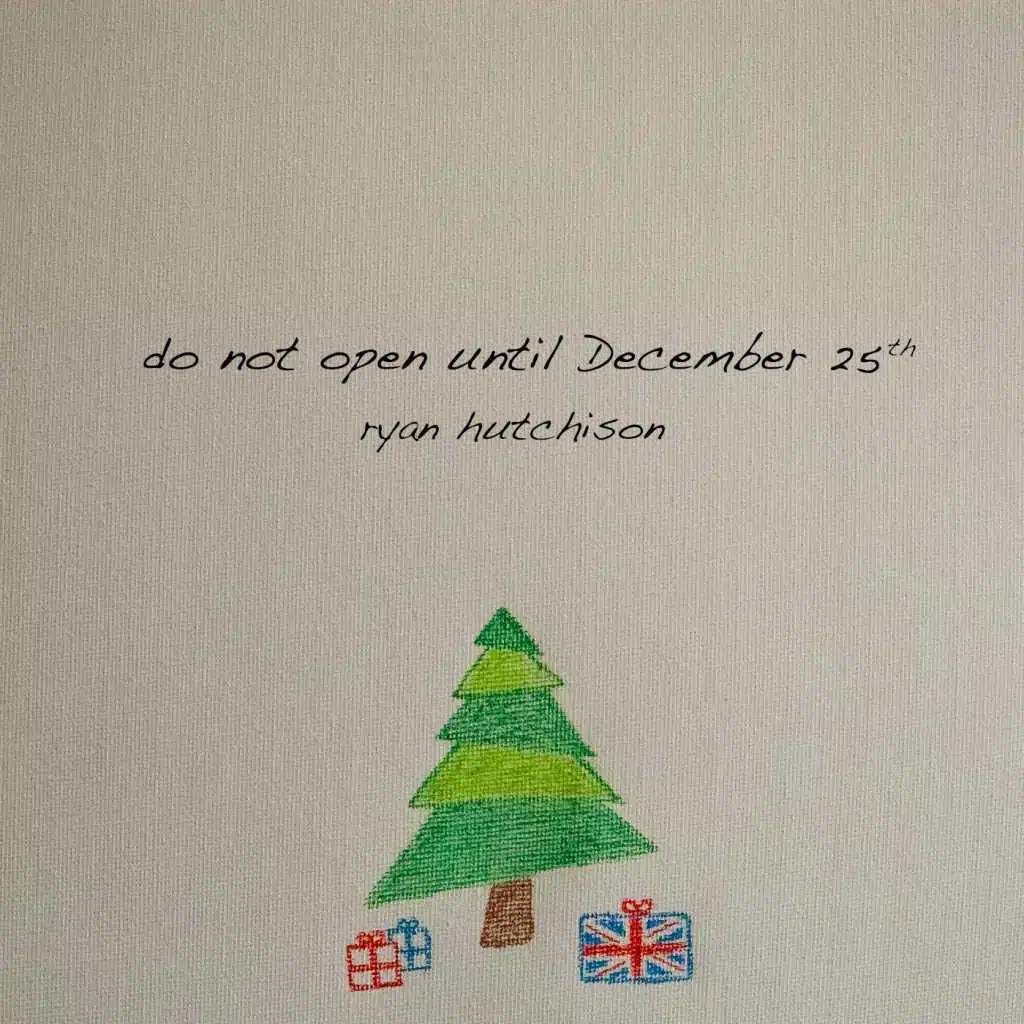 do not open until December 25th
ryan hutchison